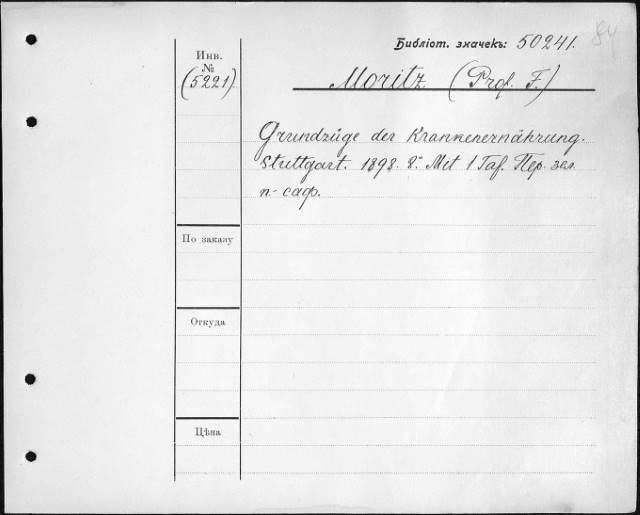 Библіот. значекъ: 50241. 84
Инв.
№
(5221).
Moritz (Prof. F.)
Grundzüge der Krankenernährung.
Stuttgart. 1898. 8º. Met 1 Taf. Пер. зел.
п.-саф.
По заказу
Откуда
Цѣна